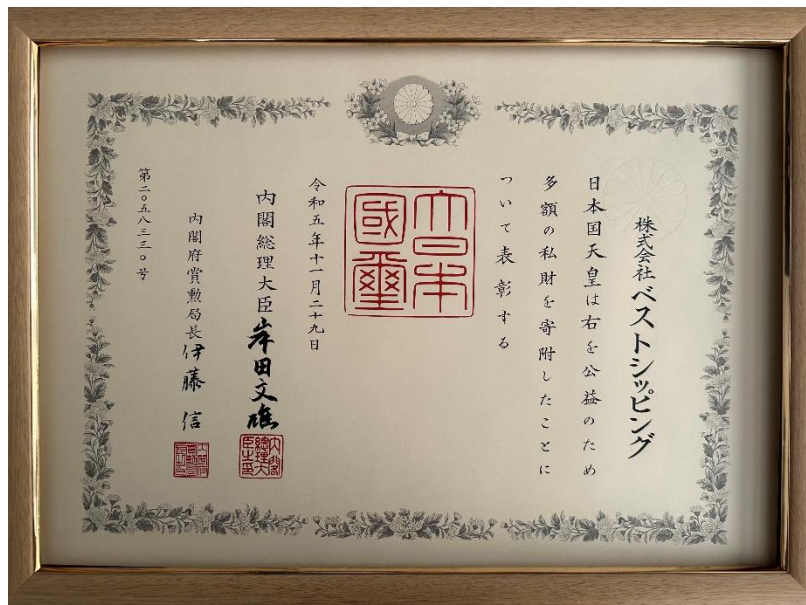 株式会社ベストシッピング
日本国天皇は右を公益のため
多額の私財を寄附したことに
ついて表彰する
大日本
國璽
令和五年十一月二十九日
内閣総理大臣岸田文雄
内閣総理大臣之印
内閣府賞勲局長伊藤信
第二〇五八三三〇号